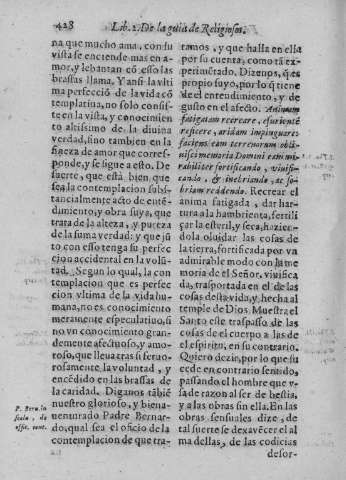 428 Lib. 2. De la gloria de Religiosos.
na que mucho ama, con su
vista se enciende mas en a-
mor, y lebantan cõ esso las
brassas llama. Y ansi la vltima
perfecció de la vida cõ
templatiua, no solo consis-
te en la vista, y conocimien
to altissimo de la diuina
verdad, sino tambien en la
fineza de amor que corres-
ponde, y se sigue a esto. De
suerte, que està bien que
sea la contemplacion subs-
tancialmente acto de entẽ-
dimiento, y obra suya, que
trata de la alteza, y pureza
de la suma verdad: y que jũ
to con esso tenga su perfec
cion accidental en la volũ-
tad. Segun lo qual, la con
templacion que es perfec
cion vltima de la vida hu-
mana, no es conocimiento
meramente especulatiuo, si
no vn conocimiento gran-
demente afectuoso, y amo-
roso, que lleua tras si feruo-
rosamente la voluntad, y
encẽdido en las brassas de
la caridad. Diganos tãbiẽ
nuestro glorioso, y biena-
uenturado Padre Bernar-
do, qual sea el oficio de la
contemplacion de que tra-
P. Bern. in
scala, de
offic. cont.
tamos, y que halla en ella
por su cuenta, como tã ex-
perimẽtado. Dizenos, q̃ es
proprio suyo, por lo q̃ tiene
de el entendimiento, y de
gusto en el afecto. Animam
fatigatam recreare, esurientẽ
reficere, aridam impinguare
faciens eam terrenorum obli-
uisci memoria Domini eam mi
rabiliter fortificando, viuifi-
cando, & inebriando, ac so-
briam reddendo. Recrear el
anima fatigada, dar har-
tura a la hambrienta, fertili-
çar la esteril, y seca, haziẽn-
dola oluidar las cosas de
la tierra, fortificada por vn
admirable modo con la me
moria de el Señor, viuifica
da, trasportada en el de las
cosas desta vida, y hecha al
temple de Dios. Muestra el
Santo este traspasso de las
cosas de el cuerpo a las de
el espiritu, en su contrario.
Quiero dezir, por lo que su
cede en contrario sentido,
passando el hombre que v-
sa de razon al ser de bestia,
y a las obras sin ella. En las
obras sensuales dize, de
tal suerte se desxavècer el al
ma dellas, de las codicias
desor-